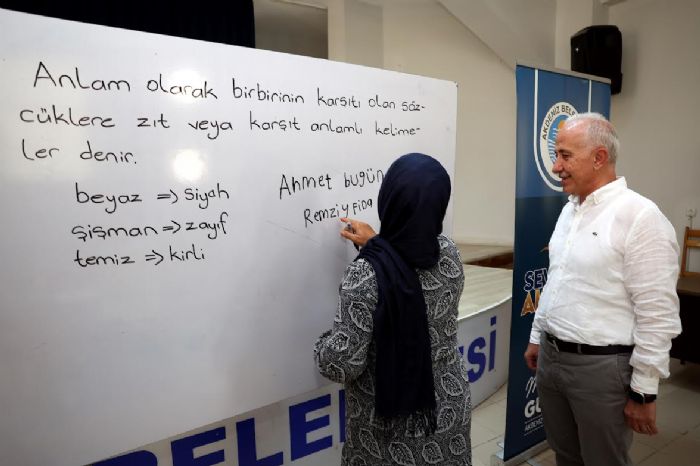 Anlam olarak birbirinin karşıtı olan söz-
cüklere zıt veya karşıt anlamlı kelime-
ler denir.
beyaz => siyah
şişman => zayıf
temiz => kirli
Ahmet bugün
AKDENİZ BELE
SEV
BELE
ESİ
GÜ
AKDENİZ